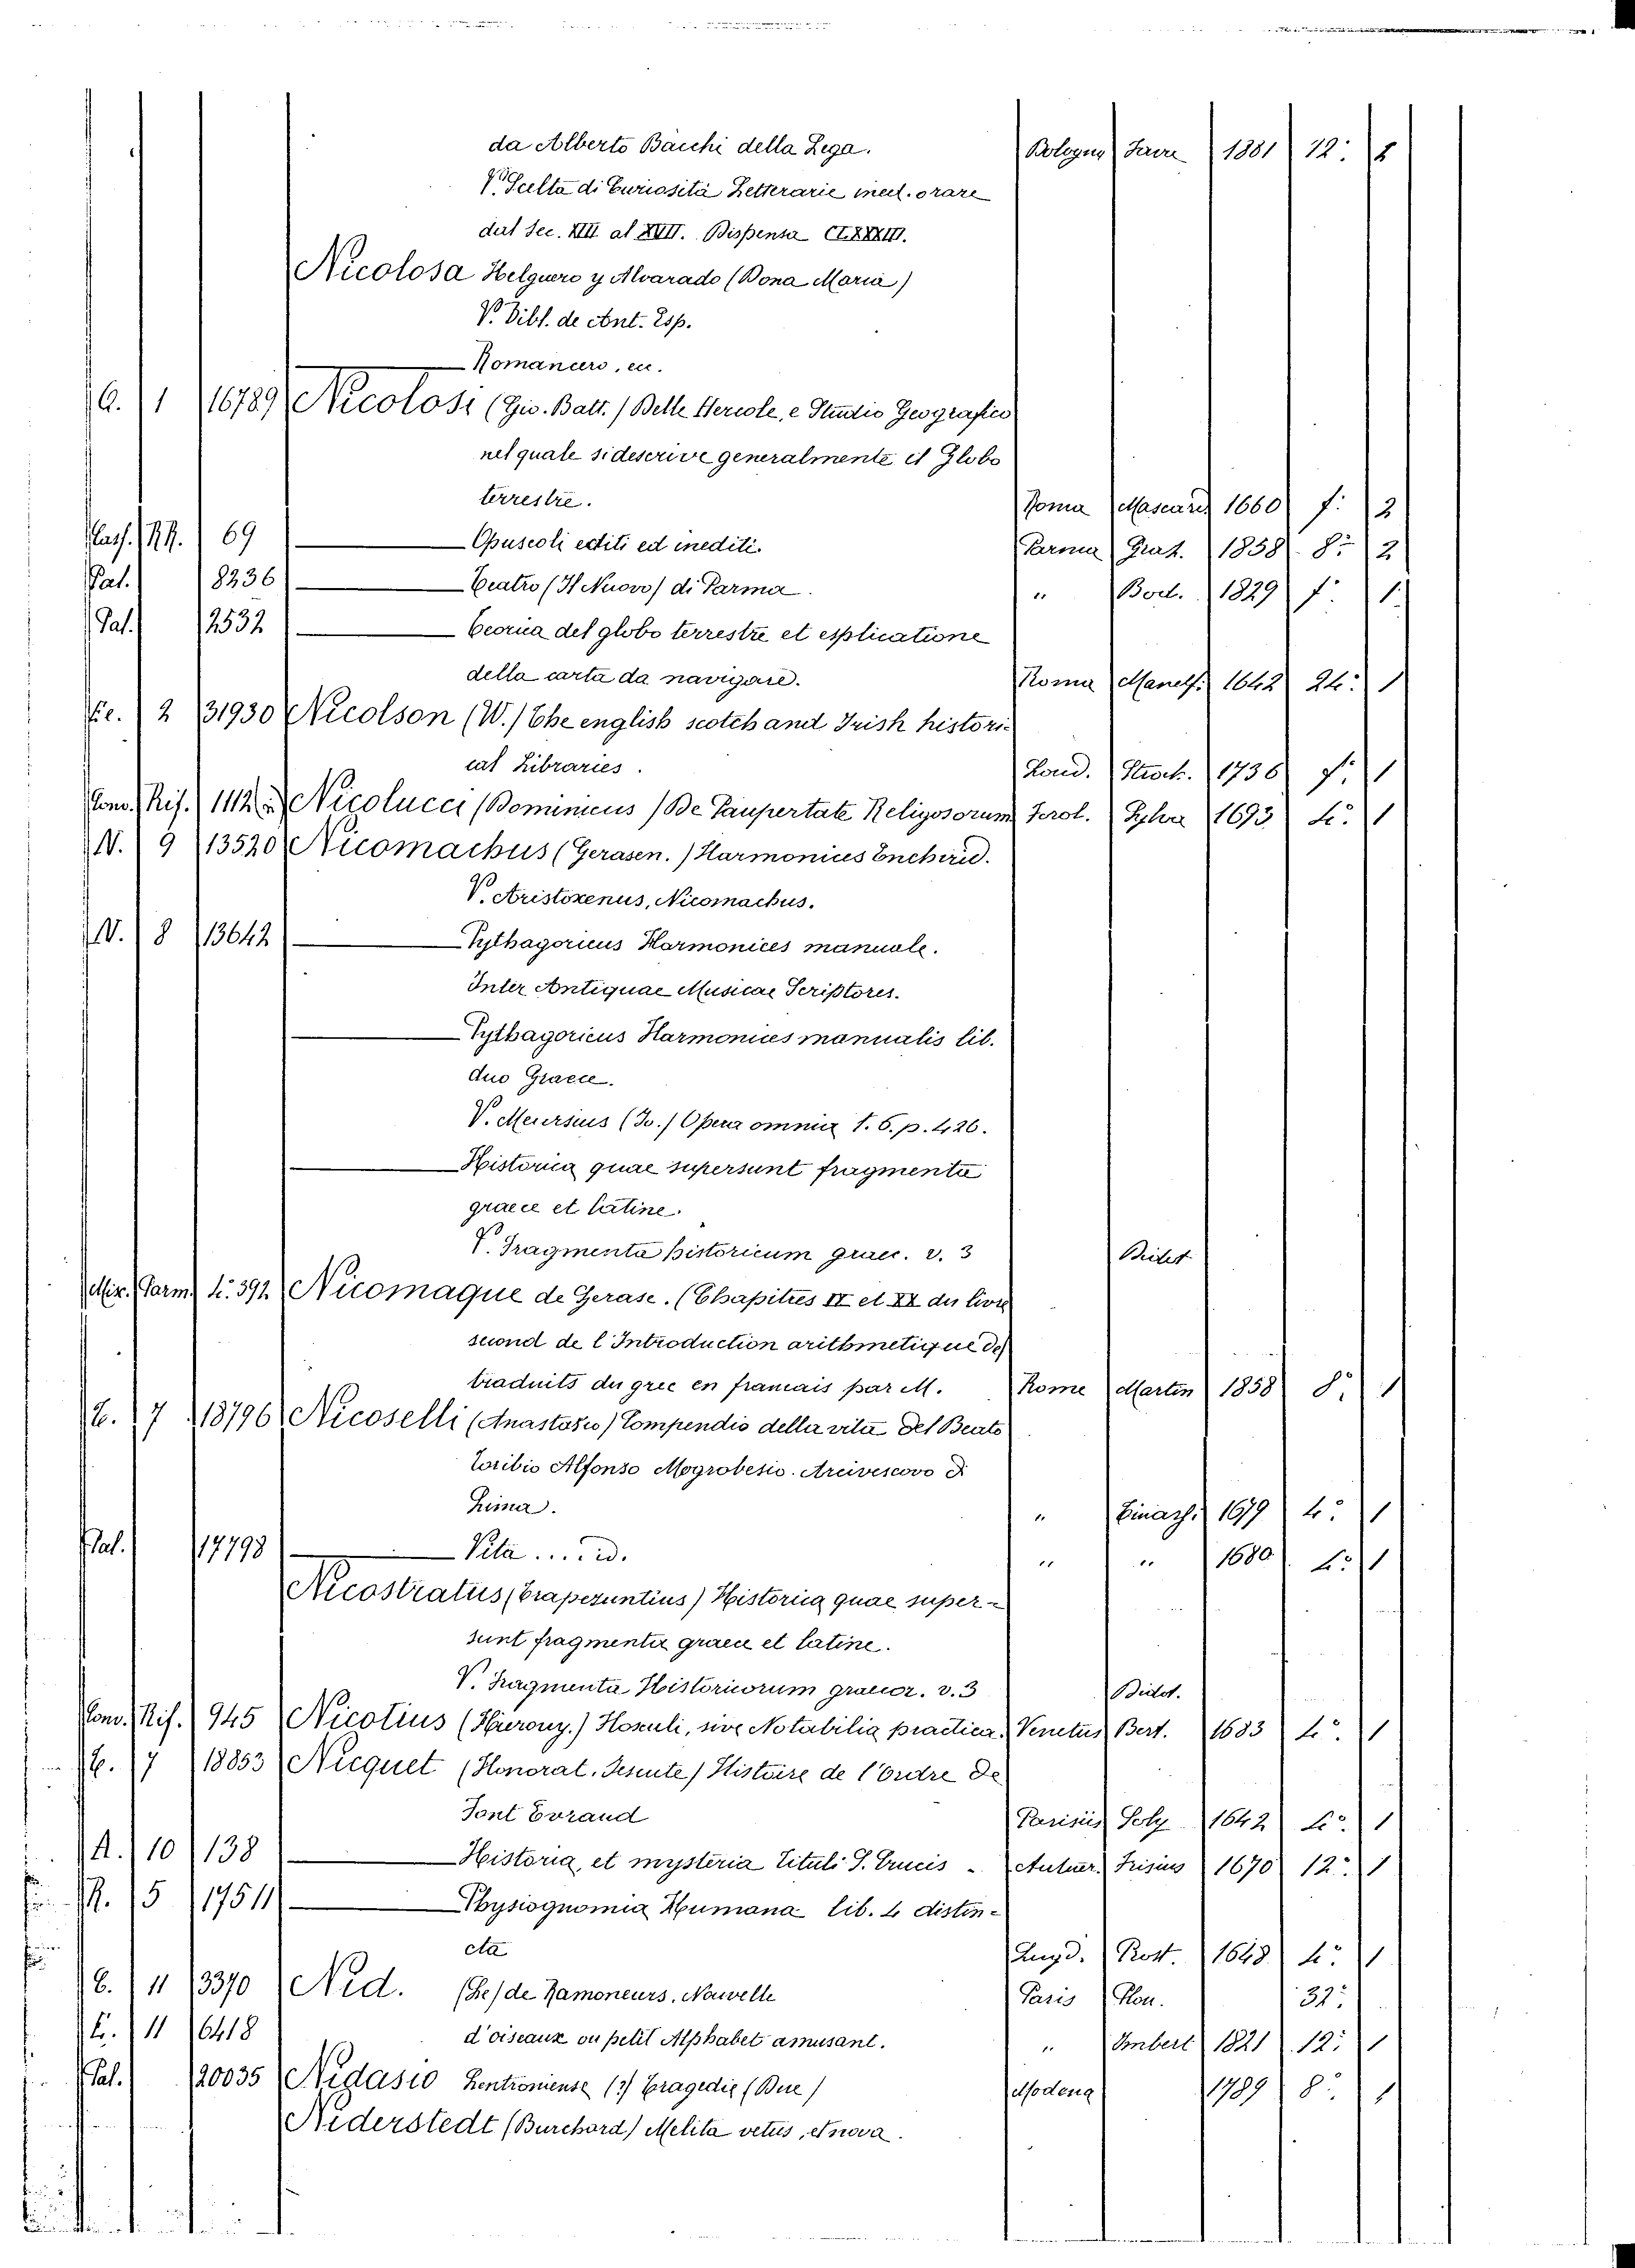 da Alberto Bacchi della Lega. Bologna 1881 12:
V. Scelta di Curiosità Letterarie ined. o rare
dal Sec. XIII al XVII. Dispensa CLXXXIII.
Nicolosa Helguero y Alvarado (Dona Maria)
V. Bibl. de Ant. Esp.
Romancero, ec.
G. 1 16789 Nicolosi (Gio. Batt.) Delle Hercole, e Studio Geografico
nel quale si descrive generalmente il Globo
terrestre. Roma Mascard 1660 f: 2
Cass. RR. 69 — Opuscoli editi ed inediti. Parma Graz. 1858 8: 2
Pal. 8236 — Teatro (Il Nuovo) di Parma. " Bod. 1829 f: 1
Pal. 12532 — Teoria del globo terrestre et esplicatione
della carta da navigare. Roma Manelf. 1642 24: 1
2 31930 Nicolson (W.) The english scotch and Irish histori-
cal Libraries. Lond. 1736 f: 1
Conv. Rif. 1112 Nicolucci (Dominicus) De Paupertate Religosorum Forol. Sylva 1693 4: 1
N. 9 13520 Nicomachus (Gerasen.) Harmonices Enchirid.
V. Aristoxenus, Nicomachus.
N. 8 13642 — Pythagoricus Harmonices manuale.
Inter Antiquae Musicae Scriptores.
— Pythagoricus Harmonices manualis lib.
duo Graece.
V. Meursius (Jo.) Opera omnia t. 6. p. 426.
— Historica quae supersunt fragmenta
graece et latine.
V. Fragmenta historicum graec. v. 3 Didot
Mix. Parm. 4: 392 Nicomaque de Gerase. (Chapitres IX et XX du livre
second de l'Introduction arithmetique de)
traduits du grec en francais par M. Rome Martin 1858 8: 1
7 18796 Nicoselli (Anastasio) Compendio della vita del Beato
Toribio Alfonso Mogrobesio. Arcivescovo di
Lima. " Tinazz. 1679 4: 1
Pal. 17798 — Vita .... id. " " 1680 4: 1
Nicostratus (Trapezuntius) Historica quae super-
sunt fragmenta graece et latine.
V. Fragmenta Historicorum graecor. v. 3 Didot.
Conv. Rif. 945 Nicolius (Hierony.) Flosculi, sive Notabilia practica. Venetus Bert. 1683 4: 1
7 18853 Nicquet (Honorat. Jesuite) Histoire de l'Ordre de
Font Evraud Parisiis Soly 1642 4: 1
A. 10 138 — Historia, et mysteria Tituli S. Crucis - Antuer. Frisius 1670 12: 1
R. 5 17511 — Physiognomia Humana lib. 4 distin-
cta Lugd. Rost. 1648 4: 1
11 3370 Ned. (Le) de Ramoneurs. Nouvelle Paris Plon. 32:
11 6418 d'oiseaux ou petit Alphabet amusant. " Imbert 1821 12: 1
Pal. 20035 Nidasio Zentroniense (?) Tragedie (Due) Modena 1789 8: 1
Niderstedt (Burchard) Melita vetus, et nova.